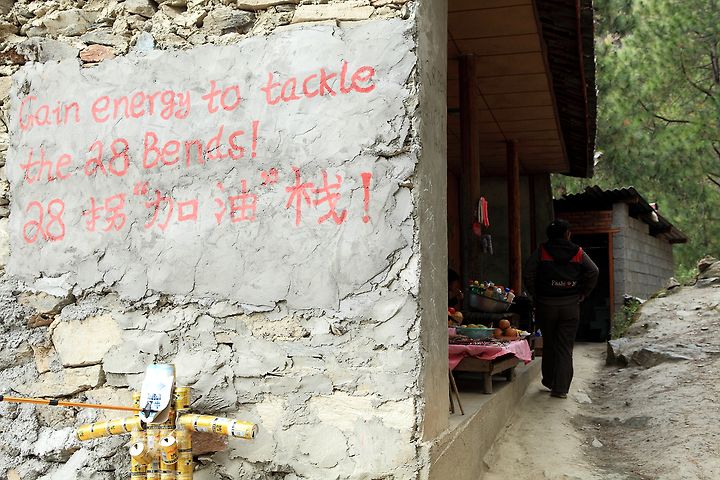 Gain energy to tackle
the 28 Bends!
28拐"加油"栈!